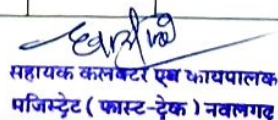 सहायक कलक्टर एवं कायपालक
मजिस्ट्रेट ( फास्ट-ट्रेक ) नवलगढ